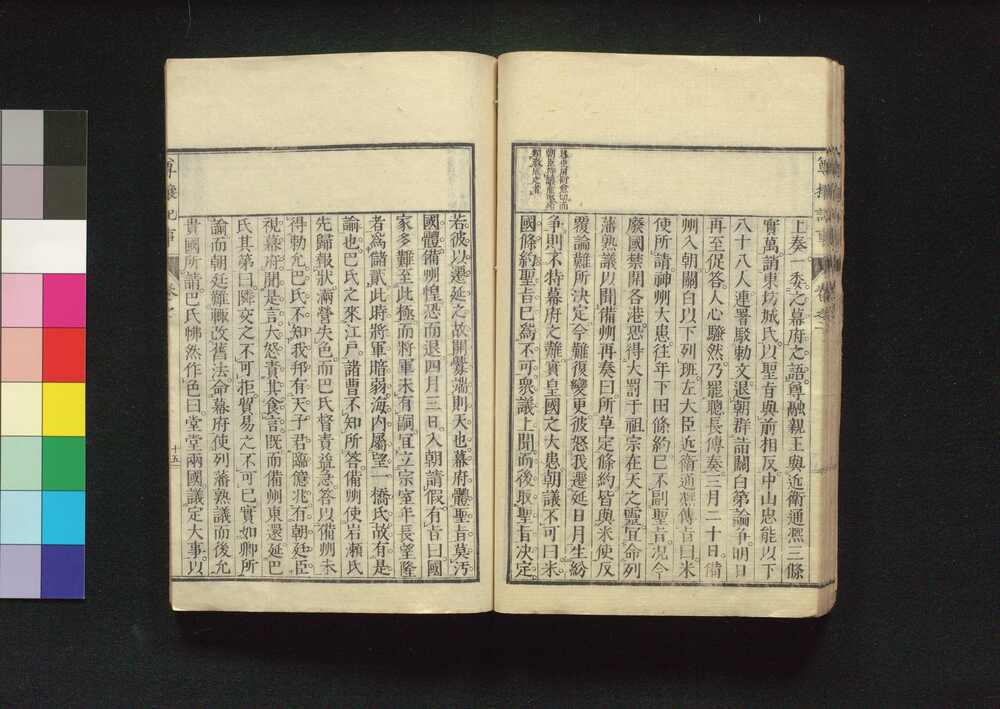 尊攘記事 卷之二
上奏一委之幕府之語尊融親王與近衛通凞三條
實萬誚東坊城氏以聖旨與前相反中山忠能以下
八十八人連署駁勅文退朝群詣關白第論爭明日
再至促答人心騷然乃罷聰長傳奏三月二十日備
州入朝關白以下列班左大臣近衛通凞傳旨曰米
使所請神州大患往年下田條約已不副聖旨况今
廢國禁開各港恐得大罰于祖宗在天之靈宜命列
藩熟議以聞備州再奏曰所草定條約皆與米使反
覆論難所決定今難復變更彼怒我遷延日月生紛
爭則不特幕府之難實皇國之大患朝議不可曰米
國條約聖旨已爲不可衆議上聞而後取聖旨决定
若彼以遷延之故開釁端則天也幕府體聖旨莫汚
國體備州惶恐而退四月三日入朝請假有旨曰國
家多難至此極而將軍未有嗣宜立宗室年長望隆
者爲儲貳此時將軍暗弱海内屬望一橋氏故有是
諭也巴氏之來江戸諸曹不知所答備州使岩瀬氏
先歸報狀滿營失色而巴氏督責益急答以備州未
得勅允巴氏不知我邦有天子君臨億兆有朝廷臣
視幕府聞是言大怨責其食言既而備州東還延巴
氏其第曰隣交之不可拒貿易之不可已實如卿所
諭而朝廷難輙改舊法命幕府使列藩熟議而後允
貴國所請巴氏怫然作色曰堂堂兩國議定大事以
尊攘紀事 卷之
十五